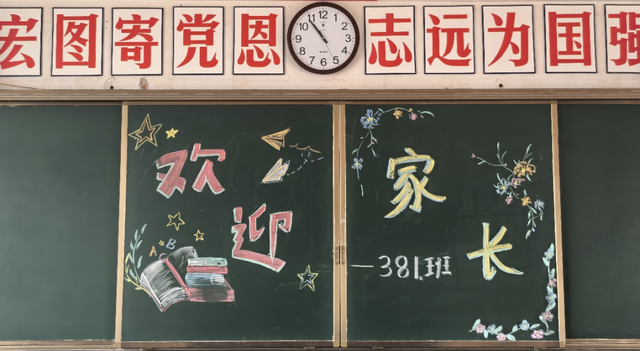 宏图寄党恩 志远为国强
12 1 2 3 4 5 6 7 8 9 10 11
欢迎
家长
A B
—381班